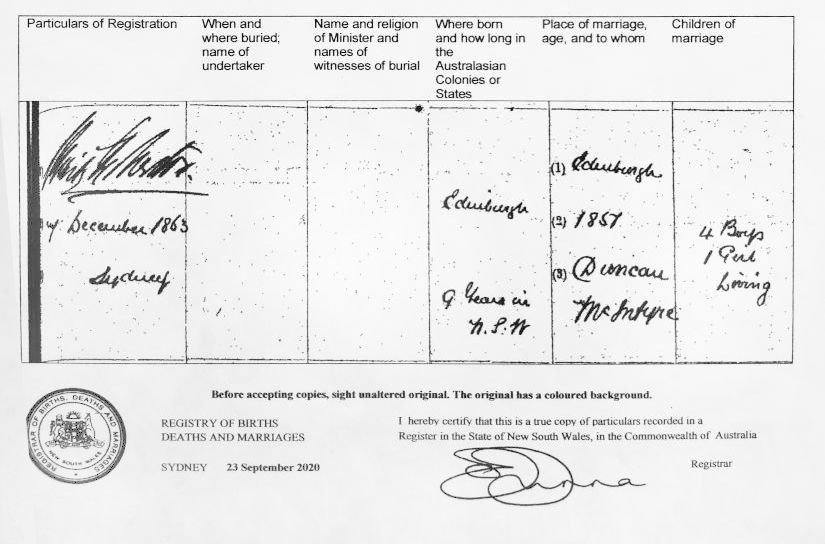 Particulars of Registration
When and
where buried;
name of
undertaker
Name and religion
of Minister and
names of
witnesses of burial
Where born
and how long in
the
Australasian
Colonies or
States
Place of marriage,
age, and to whom
Children of
marriage
December 1863
Sydney
Edinburgh
9 Years in
N.S.W
(1) Edinburgh
(2) 1857
(3) Duncan
McIntyre
4 Boys
1 Girl
Living
Before accepting copies, sight unaltered original. The original has a coloured background.
REGISTRY OF BIRTHS
DEATHS AND MARRIAGES
SYDNEY 23 September 2020
I hereby certify that this is a true copy of particulars recorded in a
Register in the State of New South Wales, in the Commonwealth of Australia
Registrar
REGISTRAR OF BIRTHS, DEATHS AND MARRIAGES
NEW SOUTH WALES